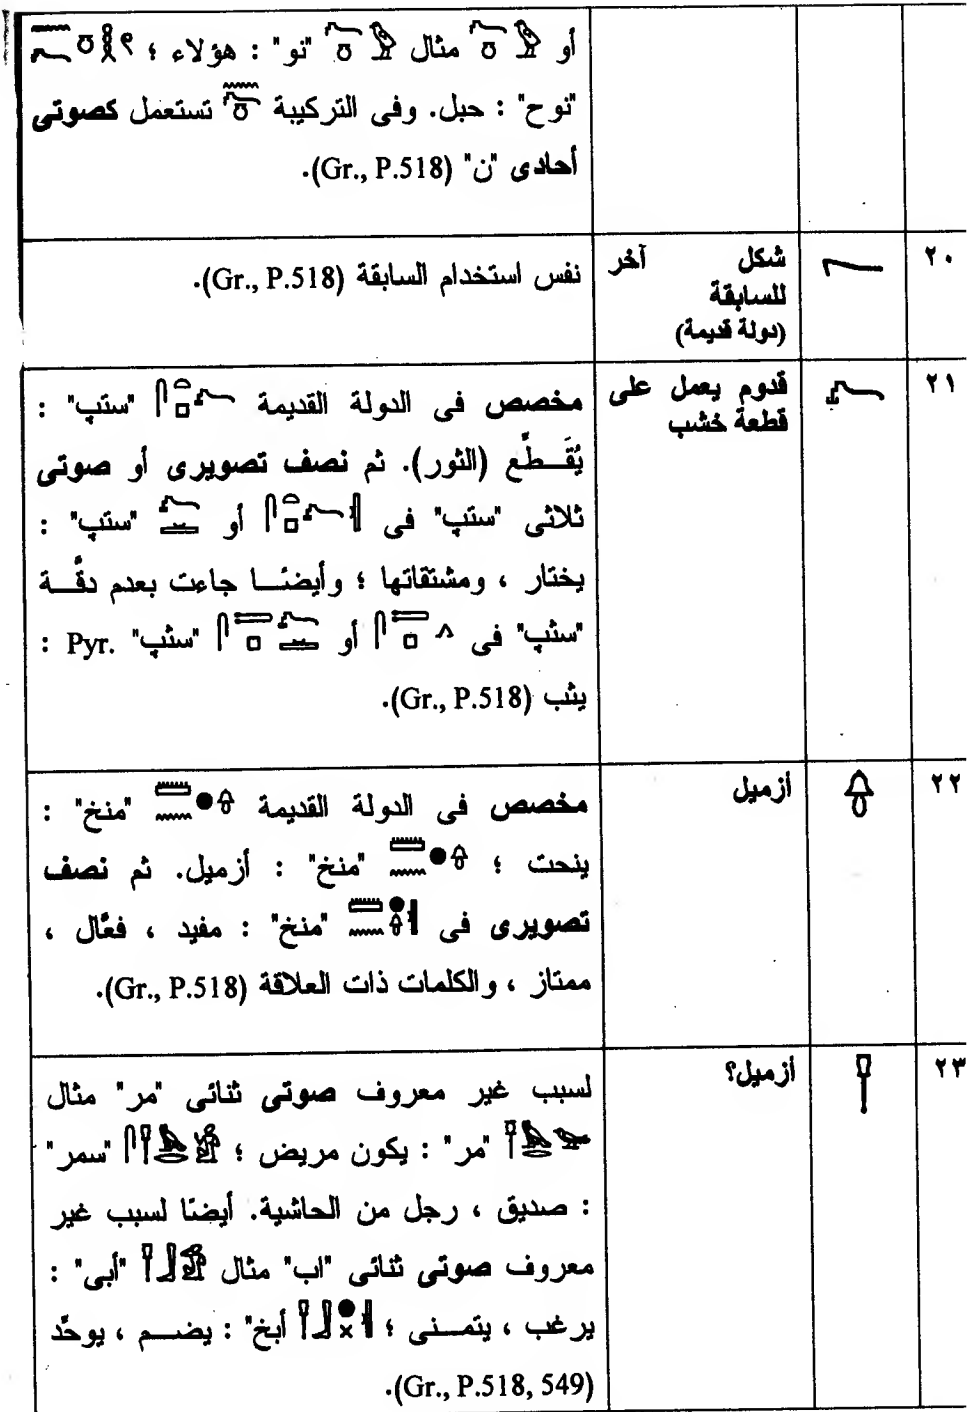 أو مثال "نو" : هؤلاء ؛
"نوح" : حبل. وفى التركيبة تستعمل كصوتى
أحادى "ن" (Gr., P.518).
٢٠
شكل آخر
للسابقة
(دولة قديمة)
نفس استخدام السابقة (Gr., P.518).
٢١
قدوم يعمل على
قطعة خشب
مخصص فى الدولة القديمة "ستپ" :
يُقَـطِّع (الثور). ثم نصف تصويرى أو صوتى
ثلاثى "ستپ" فى أو "ستپ" :
يختار ، ومشتقاتها ؛ وأيضـًا جاءت بعدم دقَّـة
"سثپ" فى أو "سثپ" Pyr. :
يثب (Gr., P.518).
٢٢
أزميل
مخصص فى الدولة القديمة "منخ" :
ينحت ؛ "منخ" : أزميل. ثم نصف
تصويرى فى "منخ" : مفيد ، فعَّال ،
ممتاز ، والكلمات ذات العلاقة (Gr., P.518).
٢٣
أزميل؟
لسبب غير معروف صوتى ثنائى "مر" مثال
"مر" : يكون مريض ؛ "سمر"
: صديق ، رجل من الحاشية. أيضًا لسبب غير
معروف صوتى ثنائى "اب" مثال "أبى" :
يرغب ، يتمـنى ؛ أبخ" : يضـم ، يوحَّد
(Gr., P.518, 549).